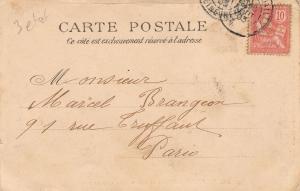 3 etoL
CARTE POSTALE
Ce côté est exclusivement réservé à l'adresse
10
Monsieur
Marcel Brangeon
91 rue Truffaut
Paris